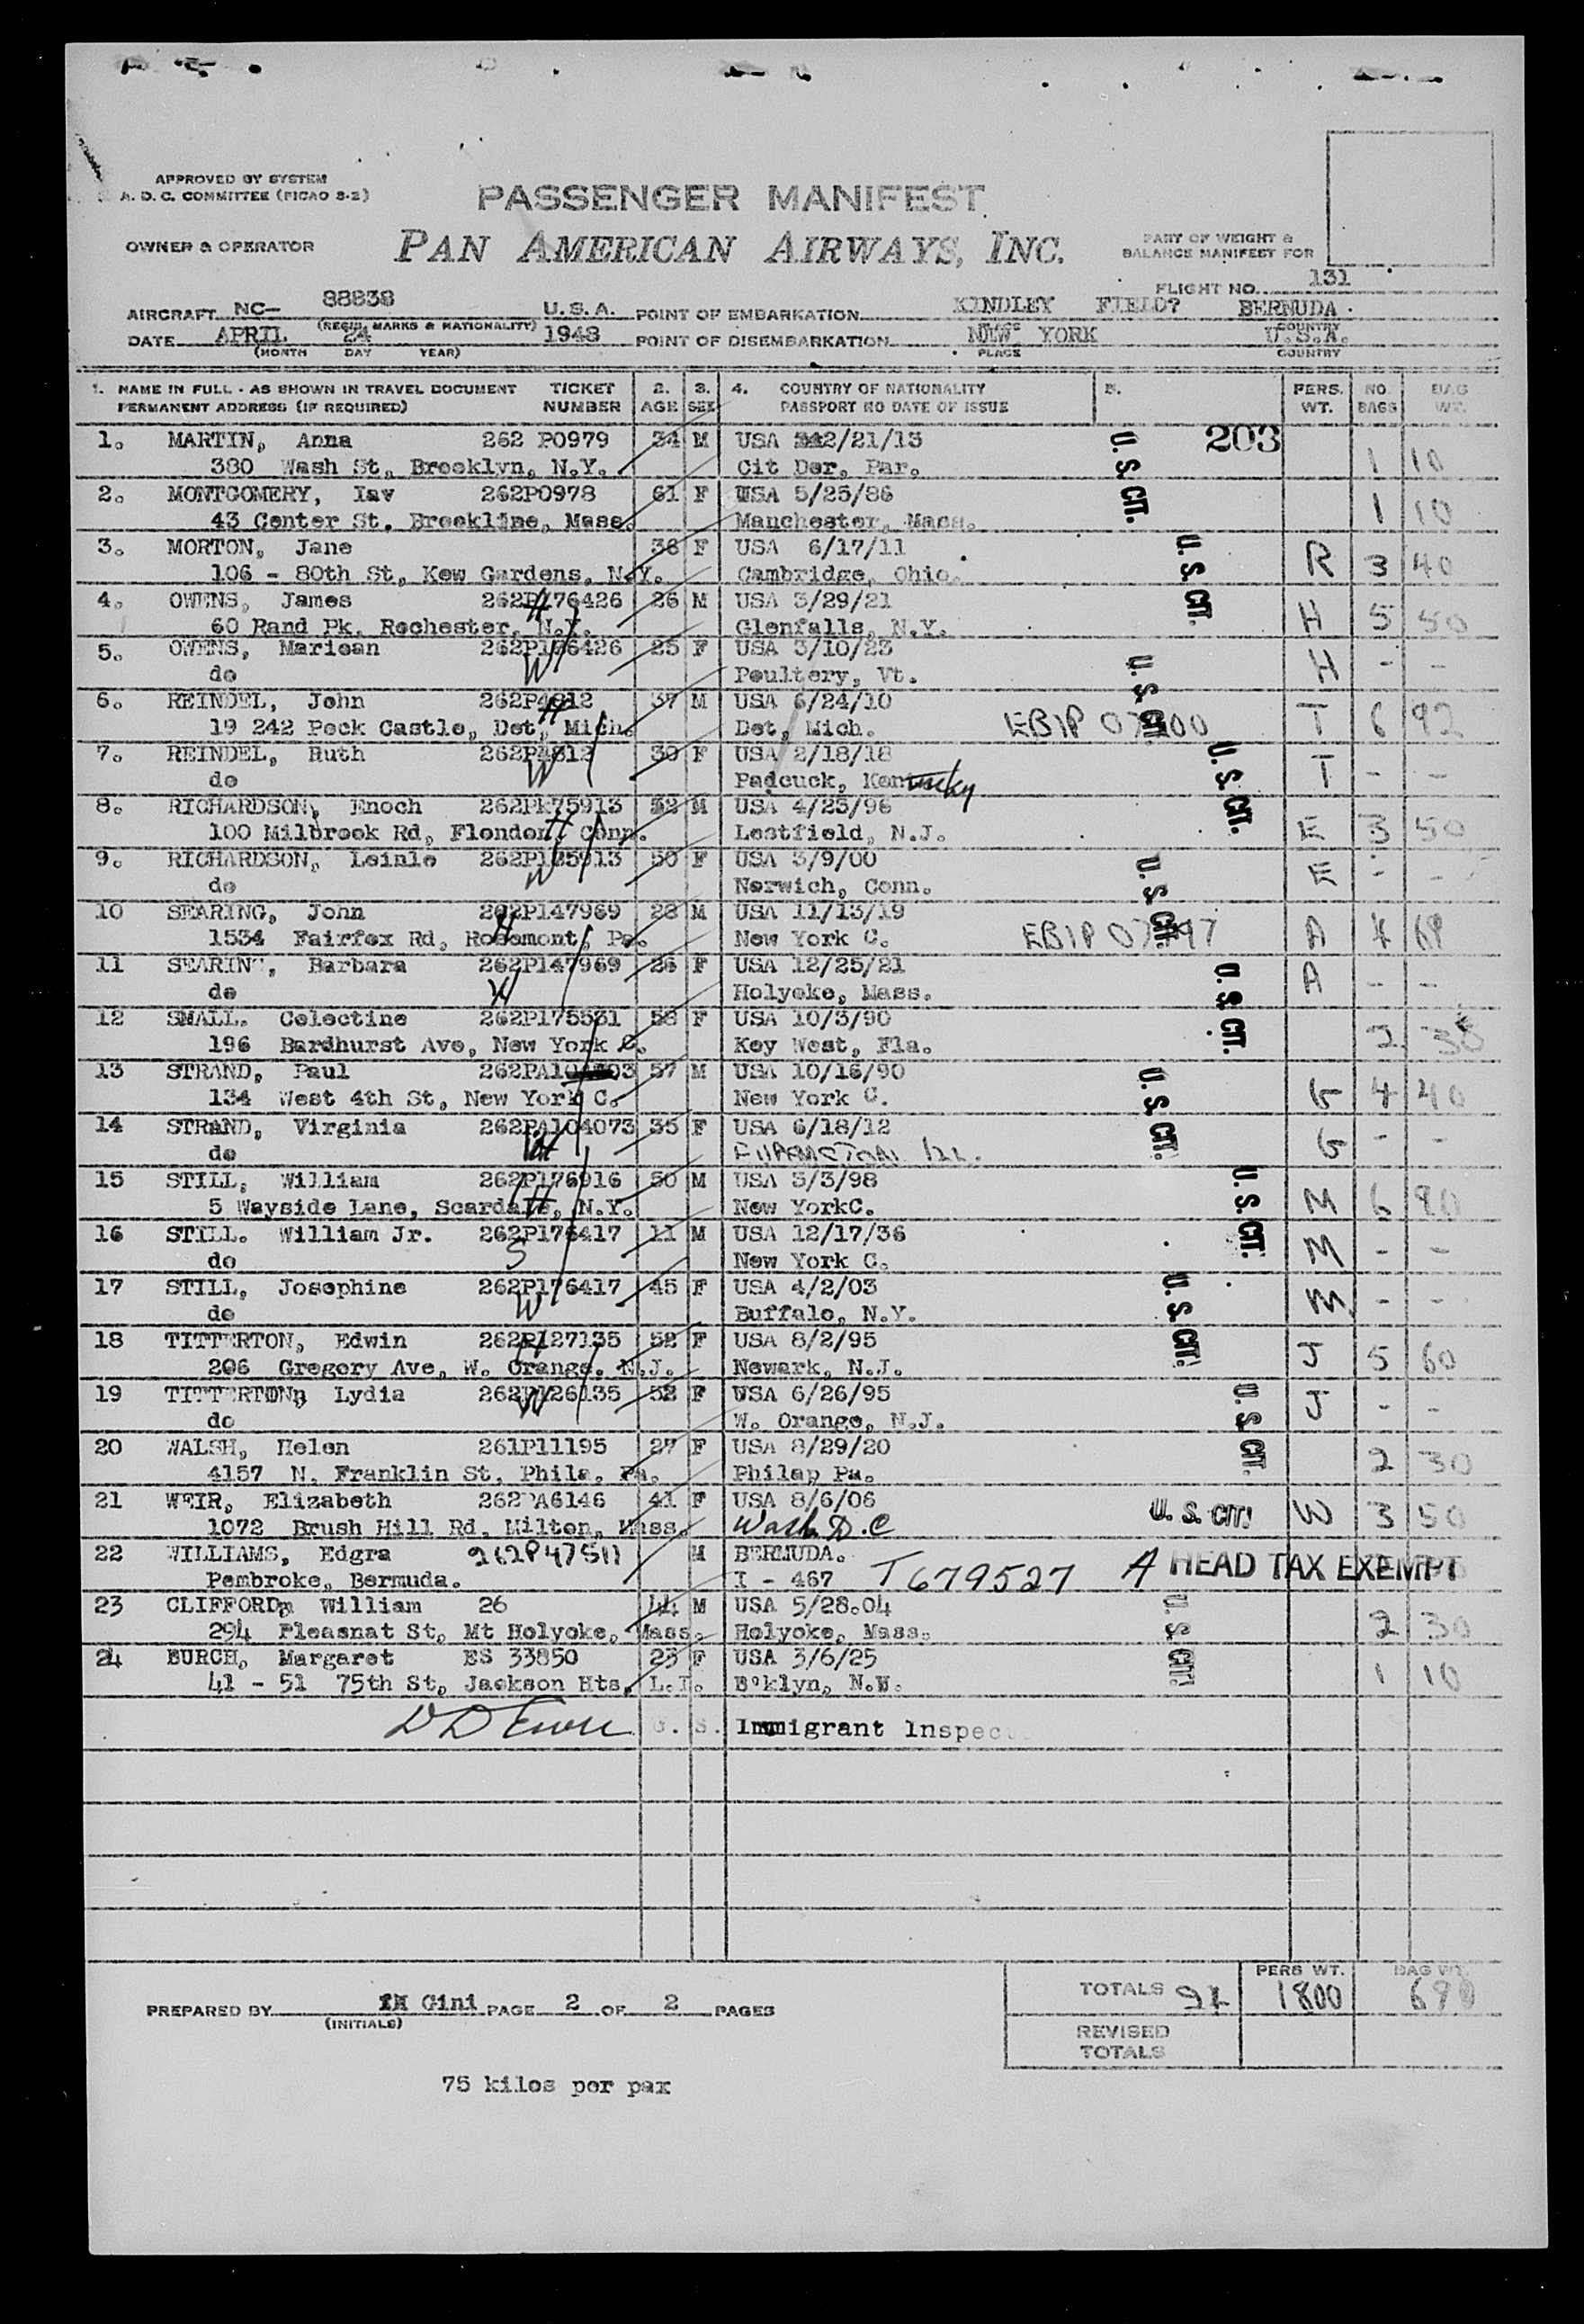 APPROVED BY SYSTEM
A. D. C. COMMITTEE (PICAO S-2)
PASSENGER MANIFEST
OWNER & OPERATOR
PAN AMERICAN AIRWAYS, INC.
PART OF WEIGHT &
BALANCE MANIFEST FOR
FLIGHT NO. 131
AIRCRAFT NC- 88838 U.S.A. POINT OF EMBARKATION KINDLEY FIELD? BERMUDA
(REGIS. MARKS & NATIONALITY) COUNTRY
DATE APRIL 24 1948 POINT OF DISEMBARKATION NEW YORK U.S.A.
(MONTH DAY YEAR) PLACE COUNTRY
1. NAME IN FULL - AS SHOWN IN TRAVEL DOCUMENT TICKET 2. 3. 4. COUNTRY OF NATIONALITY 5. PERS. NO. BAG
PERMANENT ADDRESS (IF REQUIRED) NUMBER AGE SEX PASSPORT NO DATE OF ISSUE WT. BAGS WT.
1. MARTIN, Anna 262 P0979 34 M USA 2/21/13 U. S. CIT. 203
380 Wash St, Brooklyn, N.Y. Cit Der, Par. 1 10
2. MONTGOMERY, Iav 262P0978 61 F USA 5/25/86
43 Center St. Brookline, Mass. Manchester, Mass. 1 10
3. MORTON, Jane 36 F USA 6/17/11 U. S. CIT.
106 - 80th St, Kew Gardens, N.Y. Cambridge, Ohio. R 3 40
4. OWENS, James 262P176426 26 M USA 3/29/21
60 Rand Pk. Rochester, N.Y. H Glenfalls, N.Y. H 5 50
5. OWENS, Marioan 262P176426 25 F USA 3/10/23 U. S. CIT.
do W Poultery, Vt. H - -
6. REINDEL, John 262P4812 37 M USA 6/24/10
19 242 Peck Castle, Det, Mich. H Det, Mich. T 6 92
7. REINDEL, Ruth 262P4813 30 F USA 2/18/18 U. S. CIT.
do W Padcuck, Kentucky T - -
8. RICHARDSON, Enoch 262P175913 52 M USA 4/25/96
100 Milbrook Rd, Flonder, Conn. H Leetfield, N.J. E 3 50
9. RICHARDSON, Leinle 262P175913 50 F USA 3/9/00 U. S. CIT.
do W Norwich, Conn. E - -
10 SEARING, John 262P147969 28 M USA 11/13/19
1534 Fairfox Rd, Rosemont, Pa. H New York C. A 4 68
11 SEARING, Barbara 262P147969 26 F USA 12/25/21 U. S. CIT.
do W Holyoke, Mass. A - -
12 SMALL. Celectine 262P175531 58 F USA 10/3/90
196 Bardhurst Ave, New York C. Key West, Fla. 2 30
13 STRAND, Paul 57 M USA 10/16/90 U. S. CIT.
134 West 4th St, New York C. New York C. G 4 40
14 STRAND, Virginia 262PA104073 35 F USA 6/18/12
do G - -
15 STILL, William 262P176916 50 M USA 3/3/98 U. S. CIT.
5 Wayside Lane, Scardale, N.Y. H New YorkC. M 6 80
16 STILL. William Jr. 262P176417 11 M USA 12/17/36
do S New York C. M - -
17 STILL, Josephine 262P176417 45 F USA 4/2/03 U. S. CIT.
do W Buffalo, N.Y. M - -
18 TITTERTON, Edwin 262P127135 52 F USA 8/2/95
206 Gregory Ave, W. Orange. N.J. H Newark, N.J. J 5 60
19 TITTERTON, Lydia 262P126135 52 F USA 6/26/95 U. S. CIT.
do W W. Orange, N.J. J - -
20 WALSH, Helen 261P11195 27 F USA 8/29/20
4157 N. Franklin St, Phila, Pa. Philap Pa. 2 30
21 WEIR, Elizabeth 262PA6146 41 F USA 8/6/06 U. S. CIT. W 3 50
1072 Brush Hill Rd, Milton, Mass. Wash D.C
22 WILLIAMS, Edgra 262P47511 M BERMUDA. A HEAD TAX EXEMPT
Pembroke, Bermuda. I - 467 T679527
23 CLIFFORD, William 26 44 M USA 5/28.04 U. S. CIT.
294 Pleasnat St, Mt Holyoke, Mass. Holyoke, Mass. 2 30
24 BURCH, Margaret ES 33850 23 F USA 3/6/25
41 - 51 75th St, Jackson Hts, L.I. B'klyn, N.Y. 1 10
U. S. Immigrant Inspec
TOTALS PERS WT. 1800 BAG WT. 690
PREPARED BY Gini PAGE 2 OF 2 PAGES
(INITIALS)
REVISED
TOTALS
75 kilos per pax